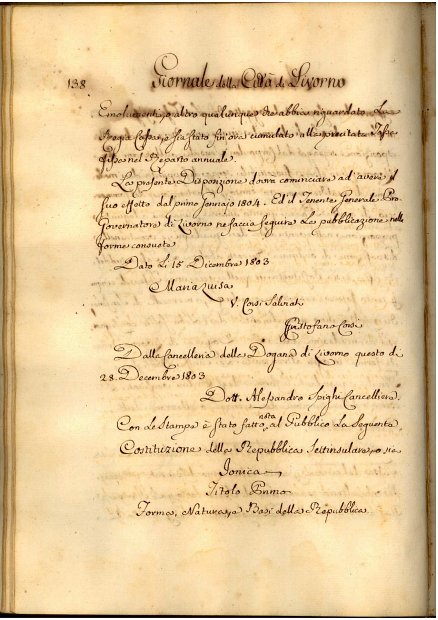 138. Giornale della Città di Livorno
Emolumento, o altro qualunque che abbia riguardato La
Regia Cassa, e sia stato fin'ora cumulato alla precitata Tas=
nel Reparto annuale.
La presente Disposizione dovrà cominciare ad avere il
suo effetto dal primo Gennajo 1804. Ed il Tenente Generale Pro
Governatore di Livorno ne faccia seguire La pubblicazione nelle
forme consuete
Dato Li 15 Dicembre 1803
Maria Luisa
V. Corsi Salviati
Cristofano Corsi
Dalla Cancelleria della Dogana di Livorno questo dì
28. Decembre 1803
Dott. Alessandro Spighi Cancelliere.
Con Le Stampe è stato fatto nota al Pubblico La Seguente
Costituzione della Repubblica Settinsulare, o sia
Jonica
Titolo Primo
Forma, Natura, e Basi della Repubblica.